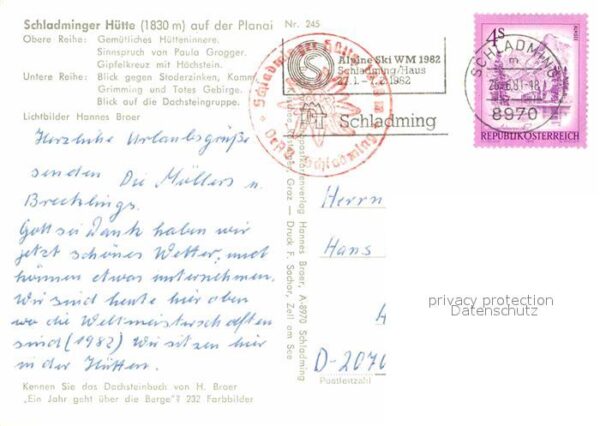 Schladminger Hütte (1830 m) auf der Planai Nr. 245
Obere Reihe: Gemütliches Hütteninnere.
Sinnspruch von Paula Grogger.
Gipfelkreuz mit Höchstein.
Untere Reihe: Blick gegen Stoderzinken, Kamm,
Grimming und Totes Gebirge.
Blick auf die Dachsteingruppe.
Lichtbilder Hannes Braer
Herzliche Urlaubsgrüße
senden Die Müllers u.
Brecklings.
Gott sei Dank haben wir
jetzt schönes Wetter, und
können etwas unternehmen.
Wir sind heute hier oben
wo die Weltmeisterschaften
sind (1982) Wir sitzen hier
in der Hütten.
Kennen Sie das Dachsteinbuch von H. Braer
„Ein Jahr geht über die Berge"? 232 Farbbilder
Schladminger Hütte
Alpine Ski WM 1982
Schladming/Haus
27.1. - 7.2.1982
Schladming
SCHLADMING
8970
4 S
REPUBLIK ÖSTERREICH
postkartenverlag Hannes Braer, A-8970 Schladming
Graz — Druck F. Sochor, Zell am See
Herrn
Hans
4
D-2070
Postleitzahl
privacy protection
Datenschutz